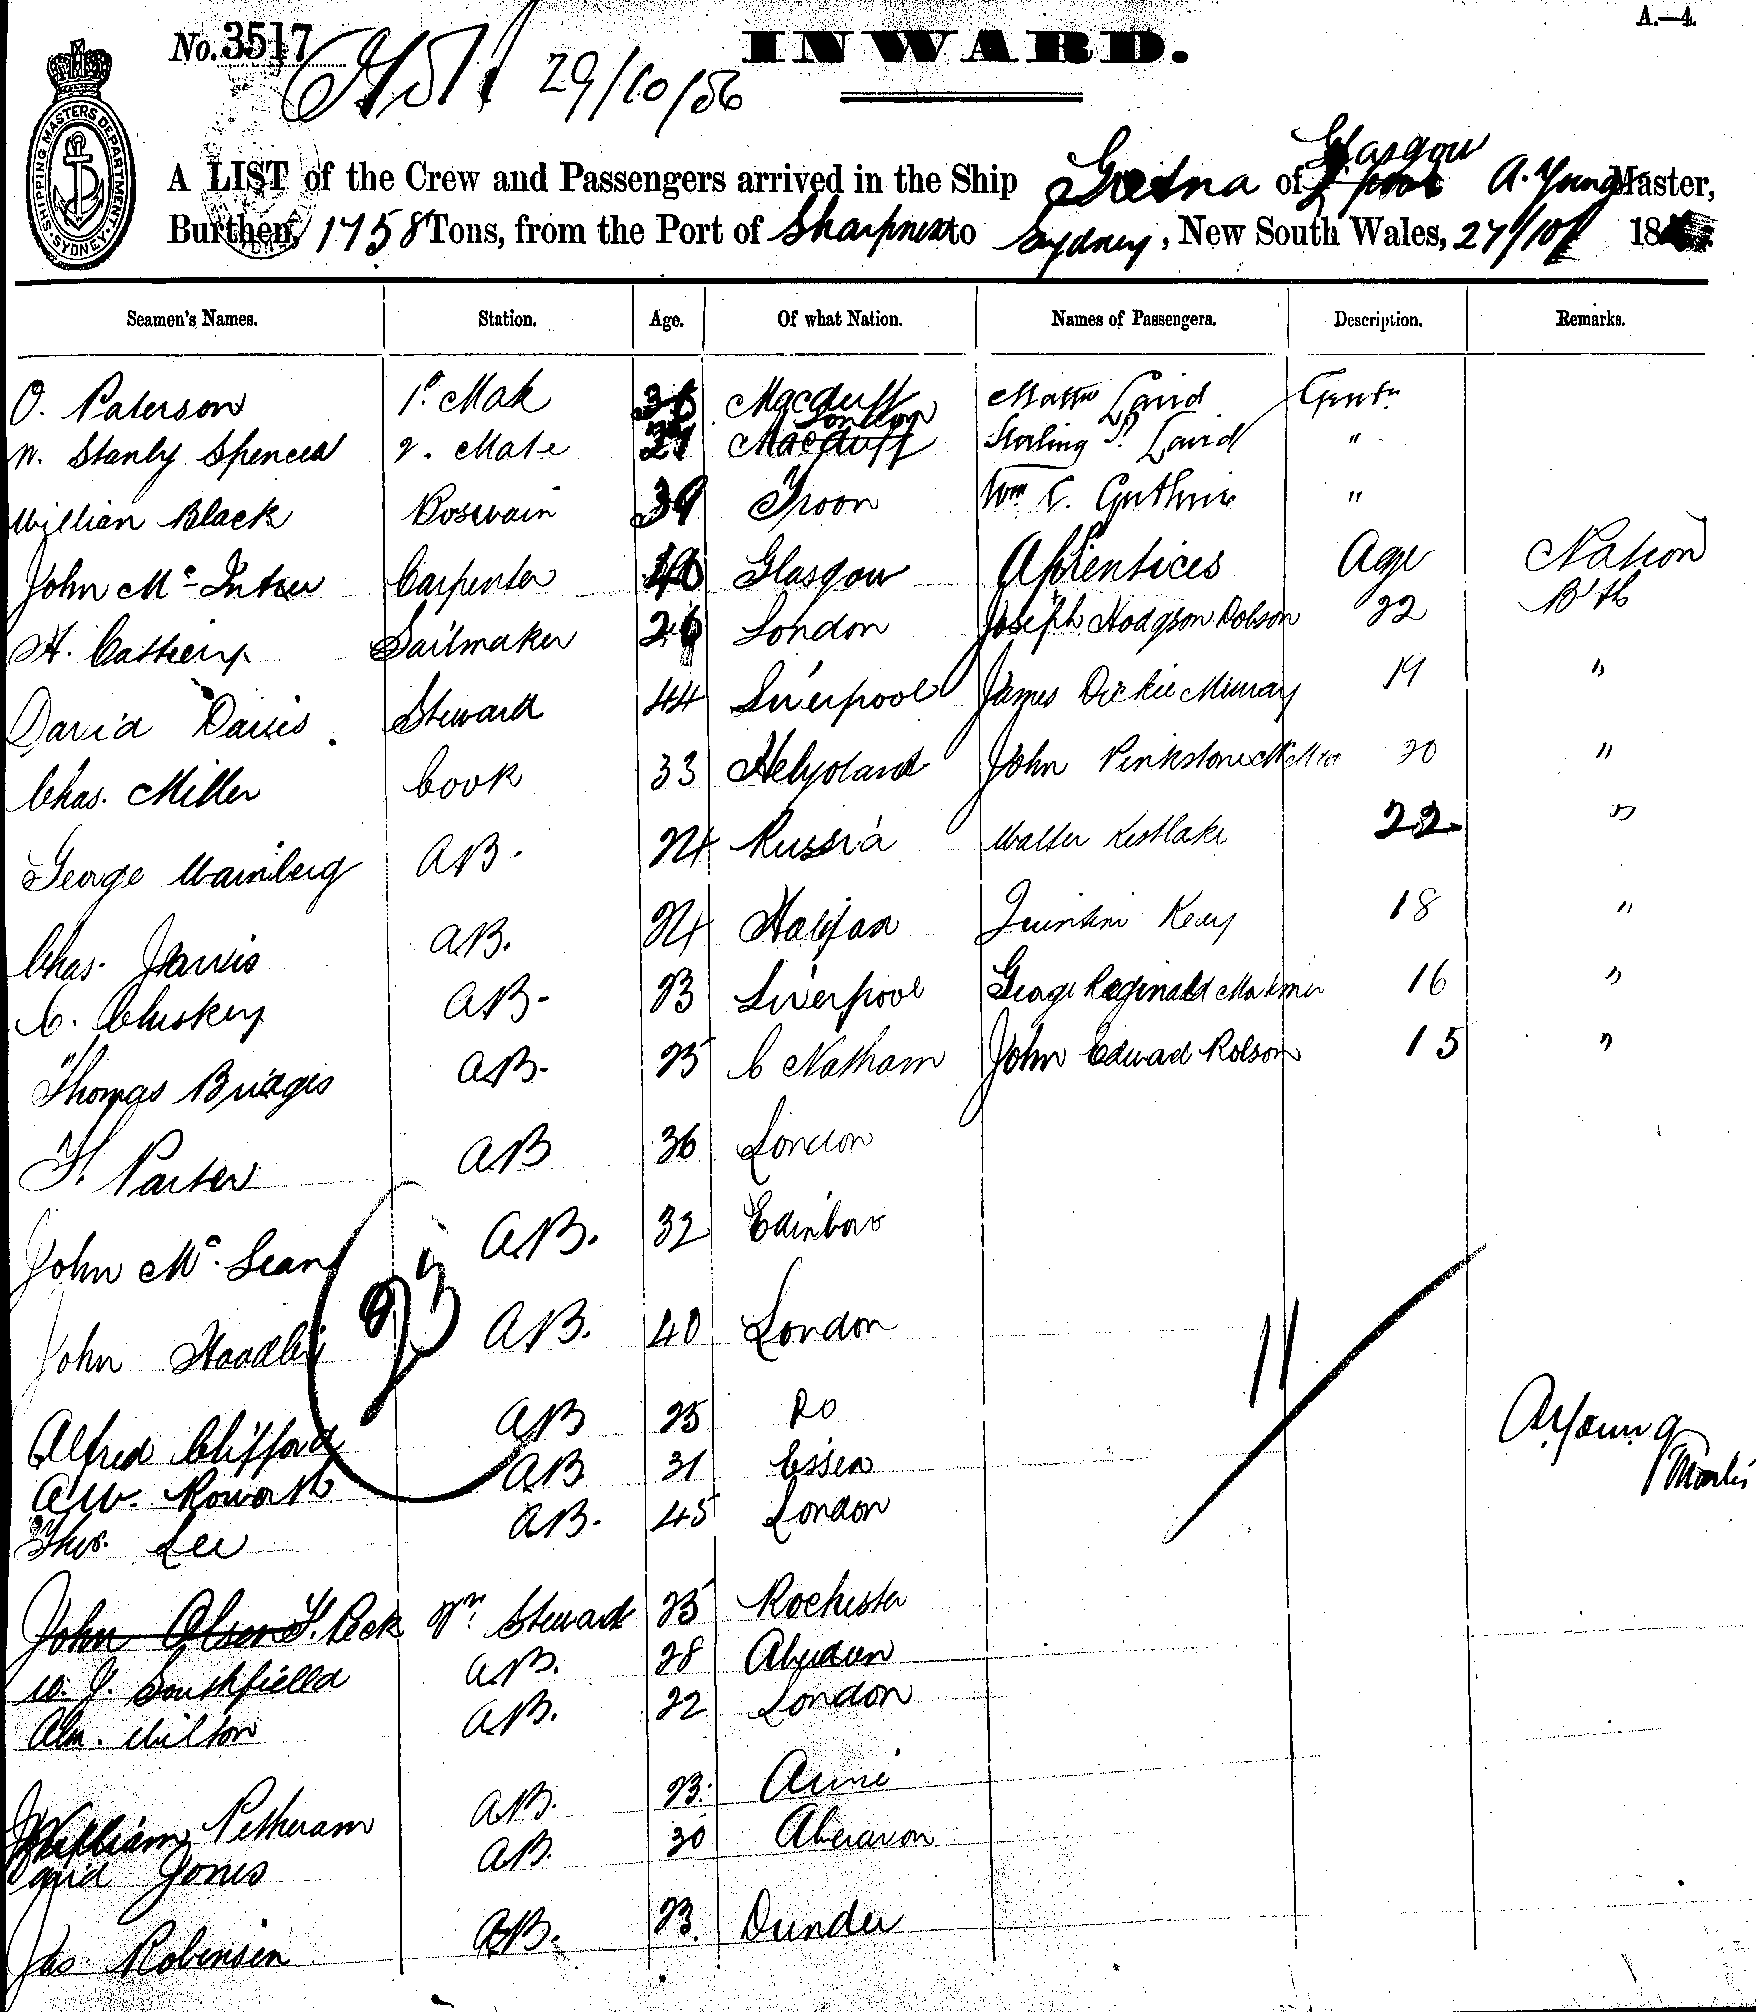 No. 3517
29/10/86
INWARD.
A.—4.
SHIPPING MASTERS DEPARTMENT SYDNEY
A LIST of the Crew and Passengers arrived in the Ship Gretna of Glasgow A. Young Master,
Burthen, 1758 Tons, from the Port of Sharpness to Sydney, New South Wales, 27/10/ 18
Seamen's Names. Station. Age. Of what Nation. Names of Passengers. Description. Remarks.
O. Paterson 1. Mate Macduff Laird Gent
W. Stanly Spenced 2. Mate 27 London Macduff Sterling Laird "
William Black Boswain 39 Troon Wm Guthrie "
John Mc Carpenter 40 Glasgow Aprentices Age Nation
H. Sailmaker 26 London Joseph Hodgson Dobson 22 B'th
David Davies Steward 44 Liverpool James Dickie Murray 19 "
Chas. Miller Cook 33 Helgoland John 20 "
George Wainberg AB. 24 Russia Walter 22 "
Chas. Jarvis AB. 24 Halifax Quintin Keay 18 "
C. Cluskey AB. 23 Liverpool George Reginald 16 "
Thomas Bridges AB. 25 John Edward Robson 15 "
AB 36 London
John Mc Lean AB. 32 Edinboro
John AB. 40 London
Alfred Clifford AB 25 Do
A.W. Roworth AB 31 Essex
Thos. Lee AB. 45 London
John Olsen Peck Steward 25 Rochester
W. J. Southfield AB. 28
Milton AB. 22 London
William Petheram AB. 23
David Jones AB. 30 Aberavon
Jas Robinson AB. 23 Dundee
11
A. Young
Master